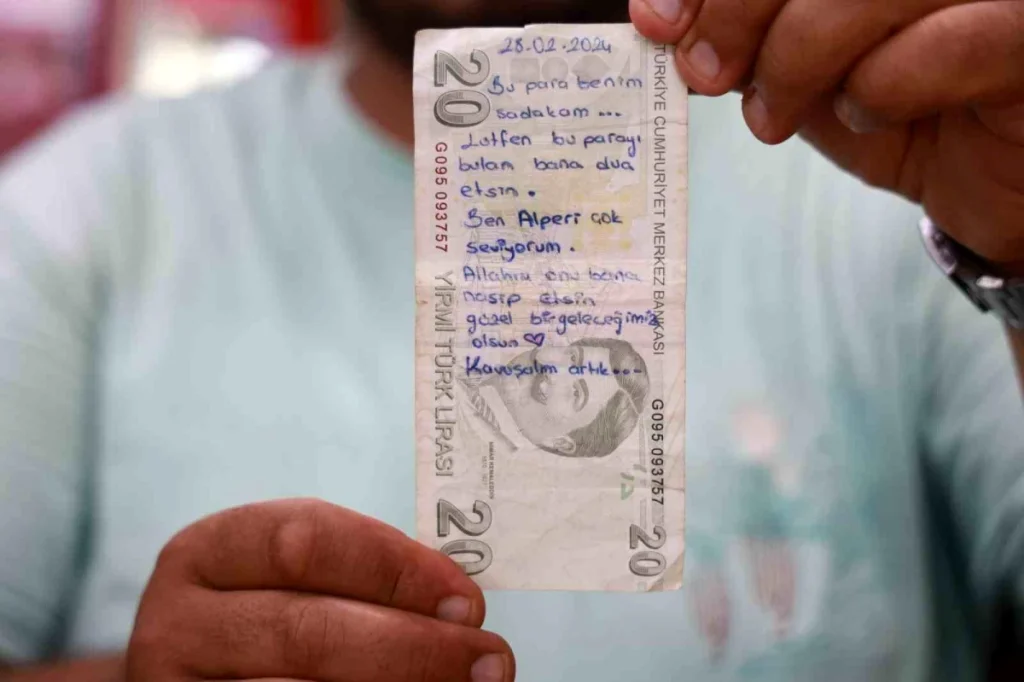 28.02.2024
Bu para benim
sadakam...
Lutfen bu parayı
bulam bana dua
etsin.
Ben Alperi çok
seviyorum.
Allahım onu bana
nasip etsin
güzel bir geleceğimiz
olsun
Kavuşalım artık...
20
G095 093757
YİRMİ TÜRK LİRASI
20
TÜRKİYE CUMHURİYET MERKEZ BANKASI
G095 093757
20